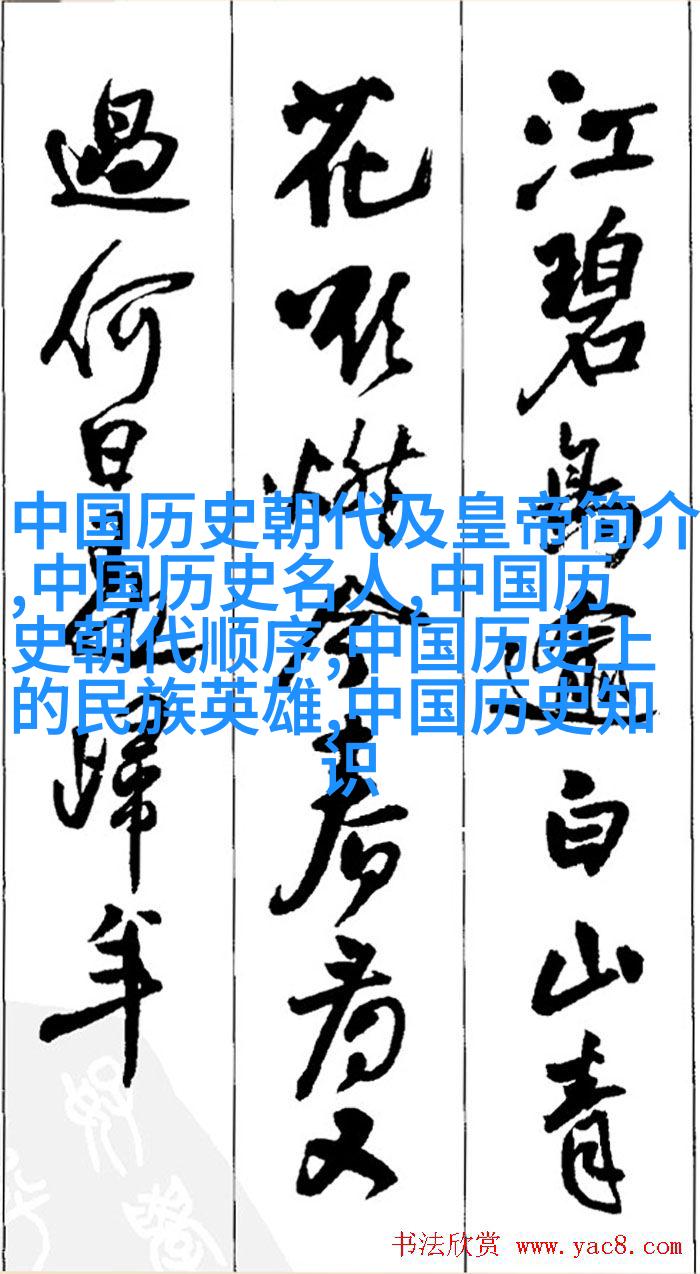 江碧鳥逾白山青
花欲燃今春看又
過何日是歸年
中国历史朝代及皇帝简介
,中国历史名人,中国历
史朝代顺序,中国历史上
的民族英雄,中国历史知
识
书法欣赏 www.yac8.com